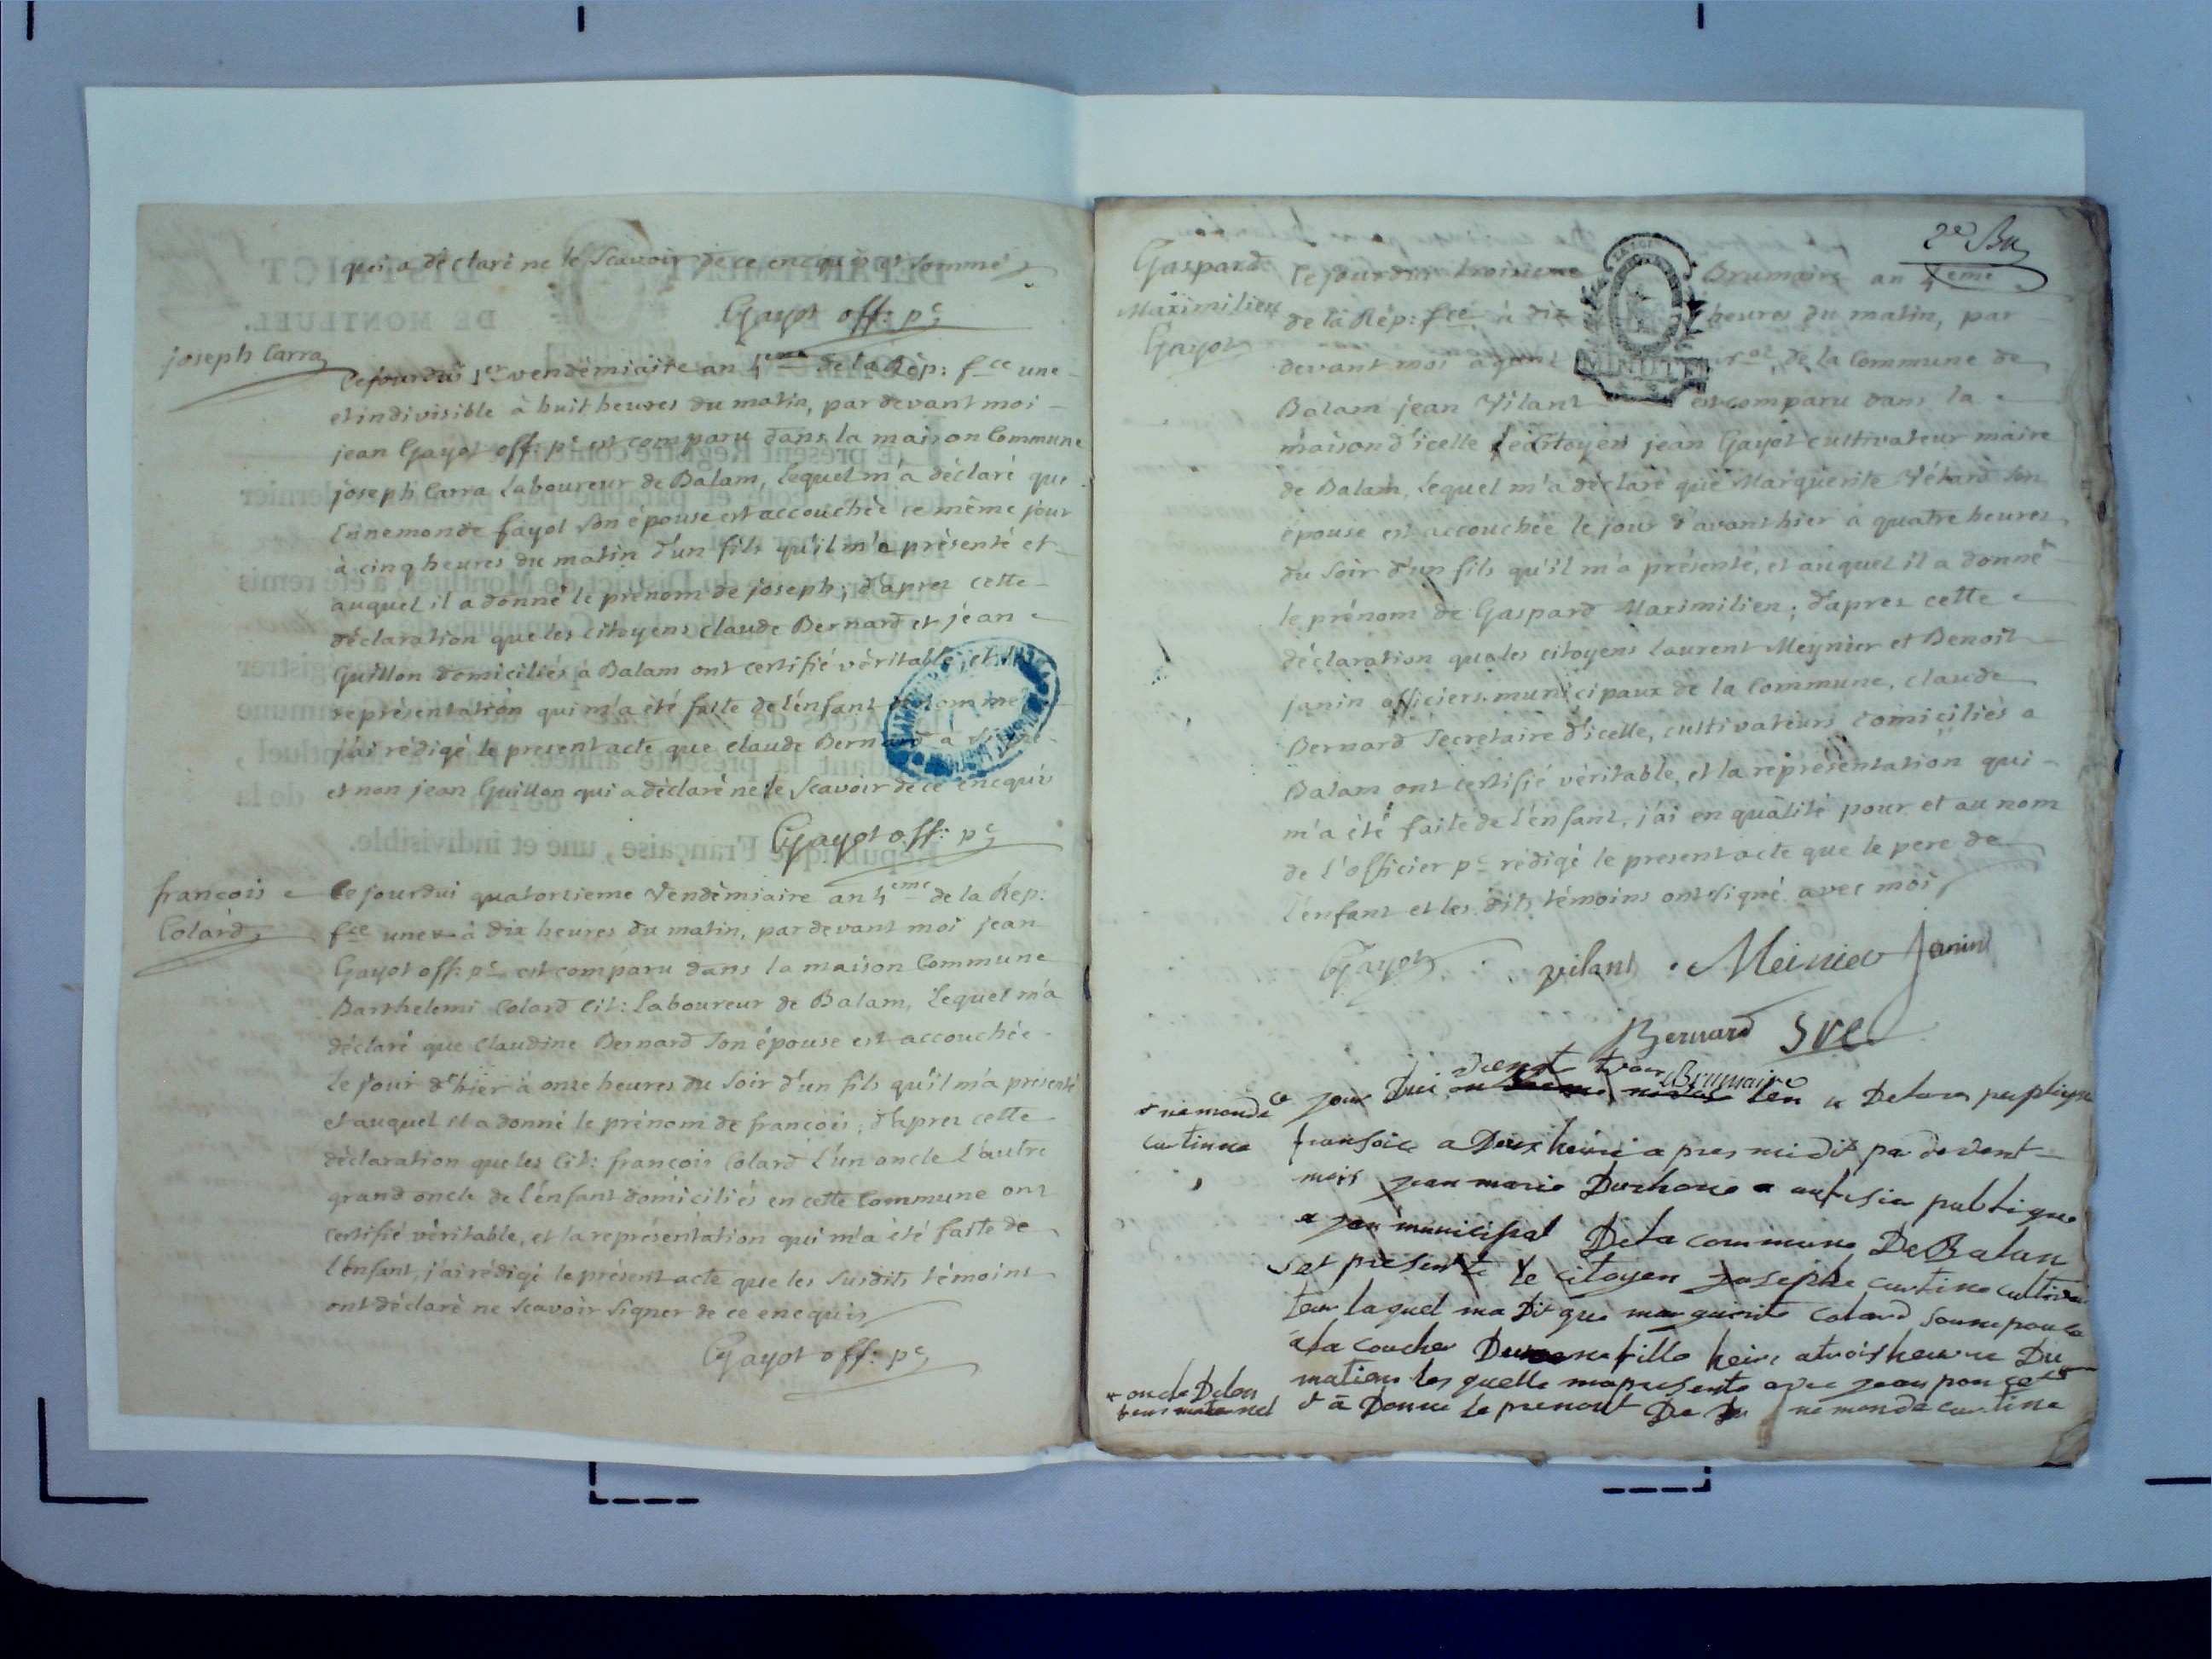 qui a déclaré ne le Scavoir de ce encquis et Sommé
Gayot off: pc
joseph Carra
Cejourdui 1er vendémiaire an 4eme de la Rép: fce une
et indivisible à huit heures du matin, pardevant moi
jean Gayot off pc est comparu dans la maison Commune
joseph Carra Laboureur de Balam, Lequel m'a déclaré que
Ennemonde fayol Son épouse est accouchée ce même jour
à cinq heures du matin d'un fils qu'il m'a présenté et
auquel il a donné le prénom de joseph; d'apres cette
déclaration que les citoyens claude Bernard et jean
Guillon domiciliés à Balam ont certifié véritable, et la
représentation qui m'a été faite de l'enfant
j'ai rédigé le present acte que claude Bernard a
et non jean Guillon qui a déclaré ne le Scavoir de ce encquis
Gayot off: pc
françois
Colard
Cejourdui quatortieme Vendémiaire an 4eme de la Rép:
fce une à dix heures du matin, pardevant moi jean
Gayot off: pc est comparu dans la maison Commune
Barthelemi Colard Cit: Laboureur de Balam, Lequel m'a
déclaré que Claudine Bernard Son épouse est accouchée
Le jour d'hier à onze heures du Soir d'un fils qu'il m'a présenté
et auquel il a donné le prénom de françois; d'apres cette
déclaration que les Cit: françois Colard L'un oncle L'autre
grand oncle de l'énfant domiciliés en cette Commune ont
certifié véritable, et la représentation qui m'a été faite de
l'énfant, j'ai rédigé le présent acte que les Susdits témoins
ont déclaré ne Scavoir Signer de ce encquis
Gayot off: pc
2e
Gaspard
Maximilien
Gayot
Cejourdui troisieme Brumaire an 4eme
de la Rép: fce à dix heures du matin, par
devant moi agent de la Commune de
Balam jean Vilant est comparu dans la
maison d'icelle le citoyen jean Gayot cultivateur maire
de Balam, Lequel m'a déclaré que Marguerite Son
épouse est accouchée le jour d'avant hier à quatre heures
du Soir d'un fils qu'il m'a présenté, et auquel il a donné
le prénom de Gaspard Maximilien; d'apres cette
déclaration que les citoyens Laurent Meynier et Benoît
janin officiers municipaux de la Commune, claude
Bernard Secretaire d'icelle, cultivateurs domiciliés a
Balam ont certifié véritable, et la représentation qui
m'a été faite de l'énfant, j'ai en qualité pour et au nom
de l'officier pc rédigé le present acte que le pere de
l'énfant et les dits témoins ont signé avec moi
Gayot vilant Meinier Janin
Bernard
MINUTE
vient trois Brumaire
nemonde
cartinne
jour Dui len 4 Delara puplique
fransoice a Deux heure a pres midit pa devent
mois jean marie publique
a jan municipal De la commune De Balan
set presenté le citoyen josephe cartine cultiva
teur laquel ma Dit que marguerite Colard
a la coucher fille heire a trois heure Du
matien les quelle ma presente avec jean
a Donné le prenont De nemonde cartine
oncle